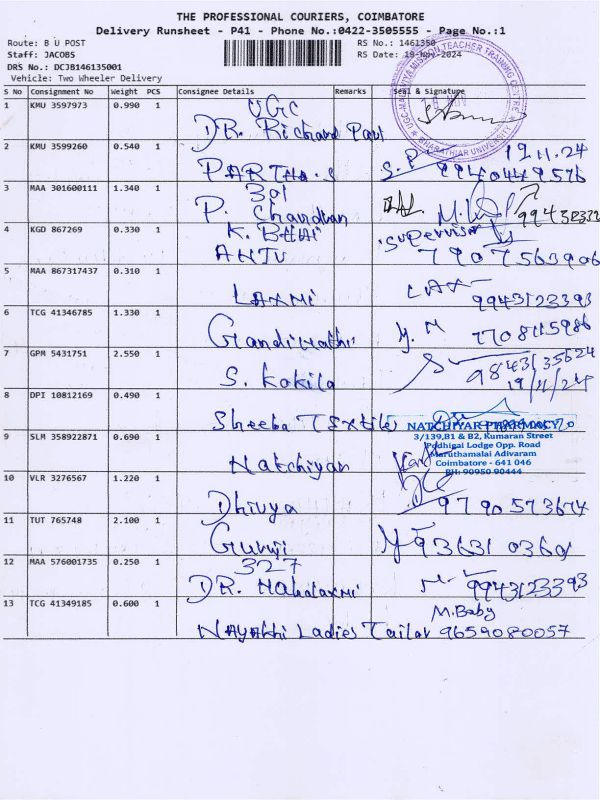 THE PROFESSIONAL COURIERS, COIMBATORE
Delivery Runsheet - P41 - Phone No.:0422-3505555 - Page No.:1
Route: B U POST
RS No.: 1461350
Staff: JACOBS
RS Date: 19-Nov-2024
DRS No.: DCJB146135001
Vehicle: Two Wheeler Delivery
S No Consignment No Weight PCS Consignee Details Remarks Seal & Signature
UGC-MALAVIYA MISSION TEACHER TRAINING CENTRE
BHARATHIAR UNIVERSITY
1 KMU 3597973 0.990 1 UGC
DR. Richard Paul
19.11.24
2 KMU 3599260 0.540 1 PARTHA.S S.P 9940449576
3 MAA 301600111 1.340 1 301
P. Chandran
4 KGD 867269 0.330 1 K. BHAI Supervisor
ANJU 7907563906
5 MAA 867317437 0.310 1
LAXMI LAX 9943123393
6 TCG 41346785 1.330 1
Gandimathi
7 GPM 5431751 2.550 1 9843135624
S. Kokila 19/11/24
8 DPI 10812169 0.490 1
Sheeba Textiles
NATCHIYAR PHARMACY
3/139,B1 & B2, Kumaran Street
Pudhigal Lodge Opp. Road
Maruthamalai Adivaram
Coimbatore - 641 046
PH: 90950 90444
9 SLM 358922871 0.690 1
Natchiyar
10 VLR 3276567 1.220 1
Dhivya 9790573674
11 TUT 765748 2.100 1
Guruji
12 MAA 576001735 0.250 1 327
DR. Mahalaxmi 9943123393
13 TCG 41349185 0.600 1 M.Baby
Nayakhi Ladies Tailor 9659080057